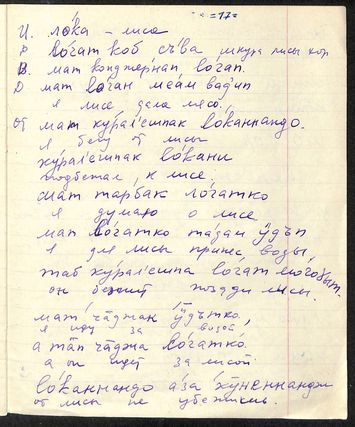 =17=
И. ло́ка – лиса
Р ло́гат коб съ́ва шкура лисы хор
В. мат конджернап ло́гап.
D мат ло́ган меа́м вадип
я лисе дала мясо.
От мат ку́ралешпак ло́каннандо.
я бегу от лисы
ку́ралешпак ло́кани
подбежал к лисе.
мат тарбак ло́гатко
я думаю о лисе
мат ло́гатко та́дап ӱдъп
я для лисы принёс воды.
таб ку́ралешпа ло́гат мого́ыт.
он бежит позади лисы.
мат ча́джак ӱдътко,
я иду за водой
а тап ча́джа ло́гатко.
а он идёт за лисой.
ло́каннандо а́за кӱненнандж
от лисы не убежишь.